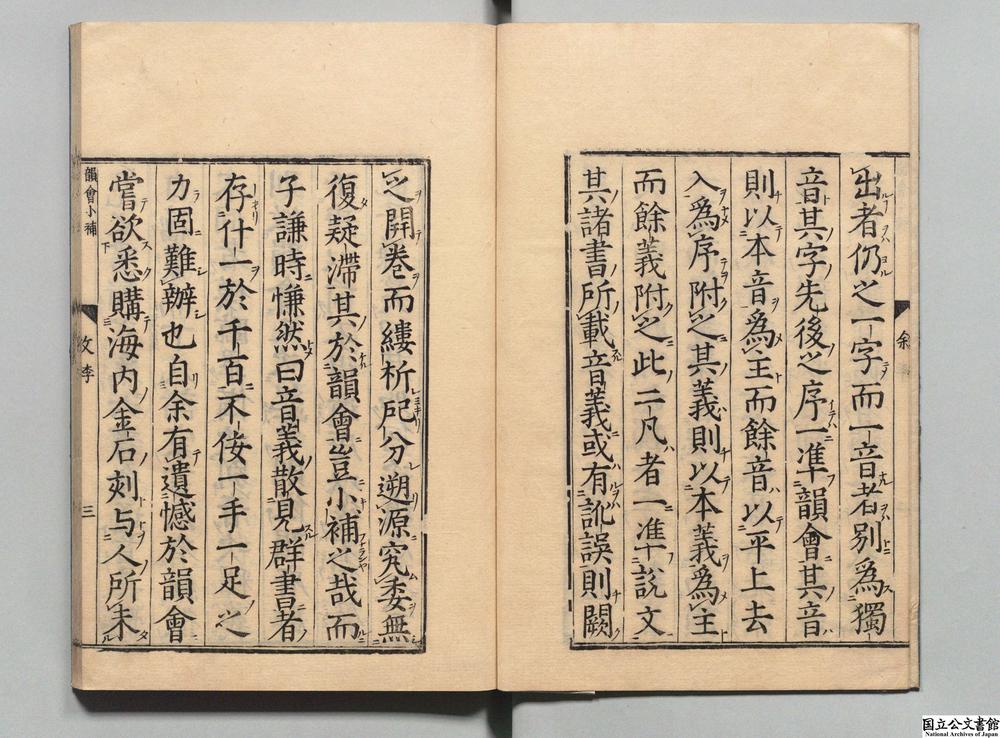 出者仍之一字而一音者別為獨
音其字先後之序一準韻會其音
則以本音為主而餘音以平上去
入為序附之其義則以本義為主
而餘義附之此二凡者一準說文
其諸書所載音義或有訛誤則闕
之開卷而縷析尺分遡源究委無
復疑滯其於韻會豈小補之哉而
子謙時慊然曰音義散見群書者
存什一於千百不佞一手一足之
力固難辦也自余有遺憾於韻會
嘗欲悉購海内金石刻与人所未
韻會小補
李
三
余
国立公文書館
National Archives of Japan